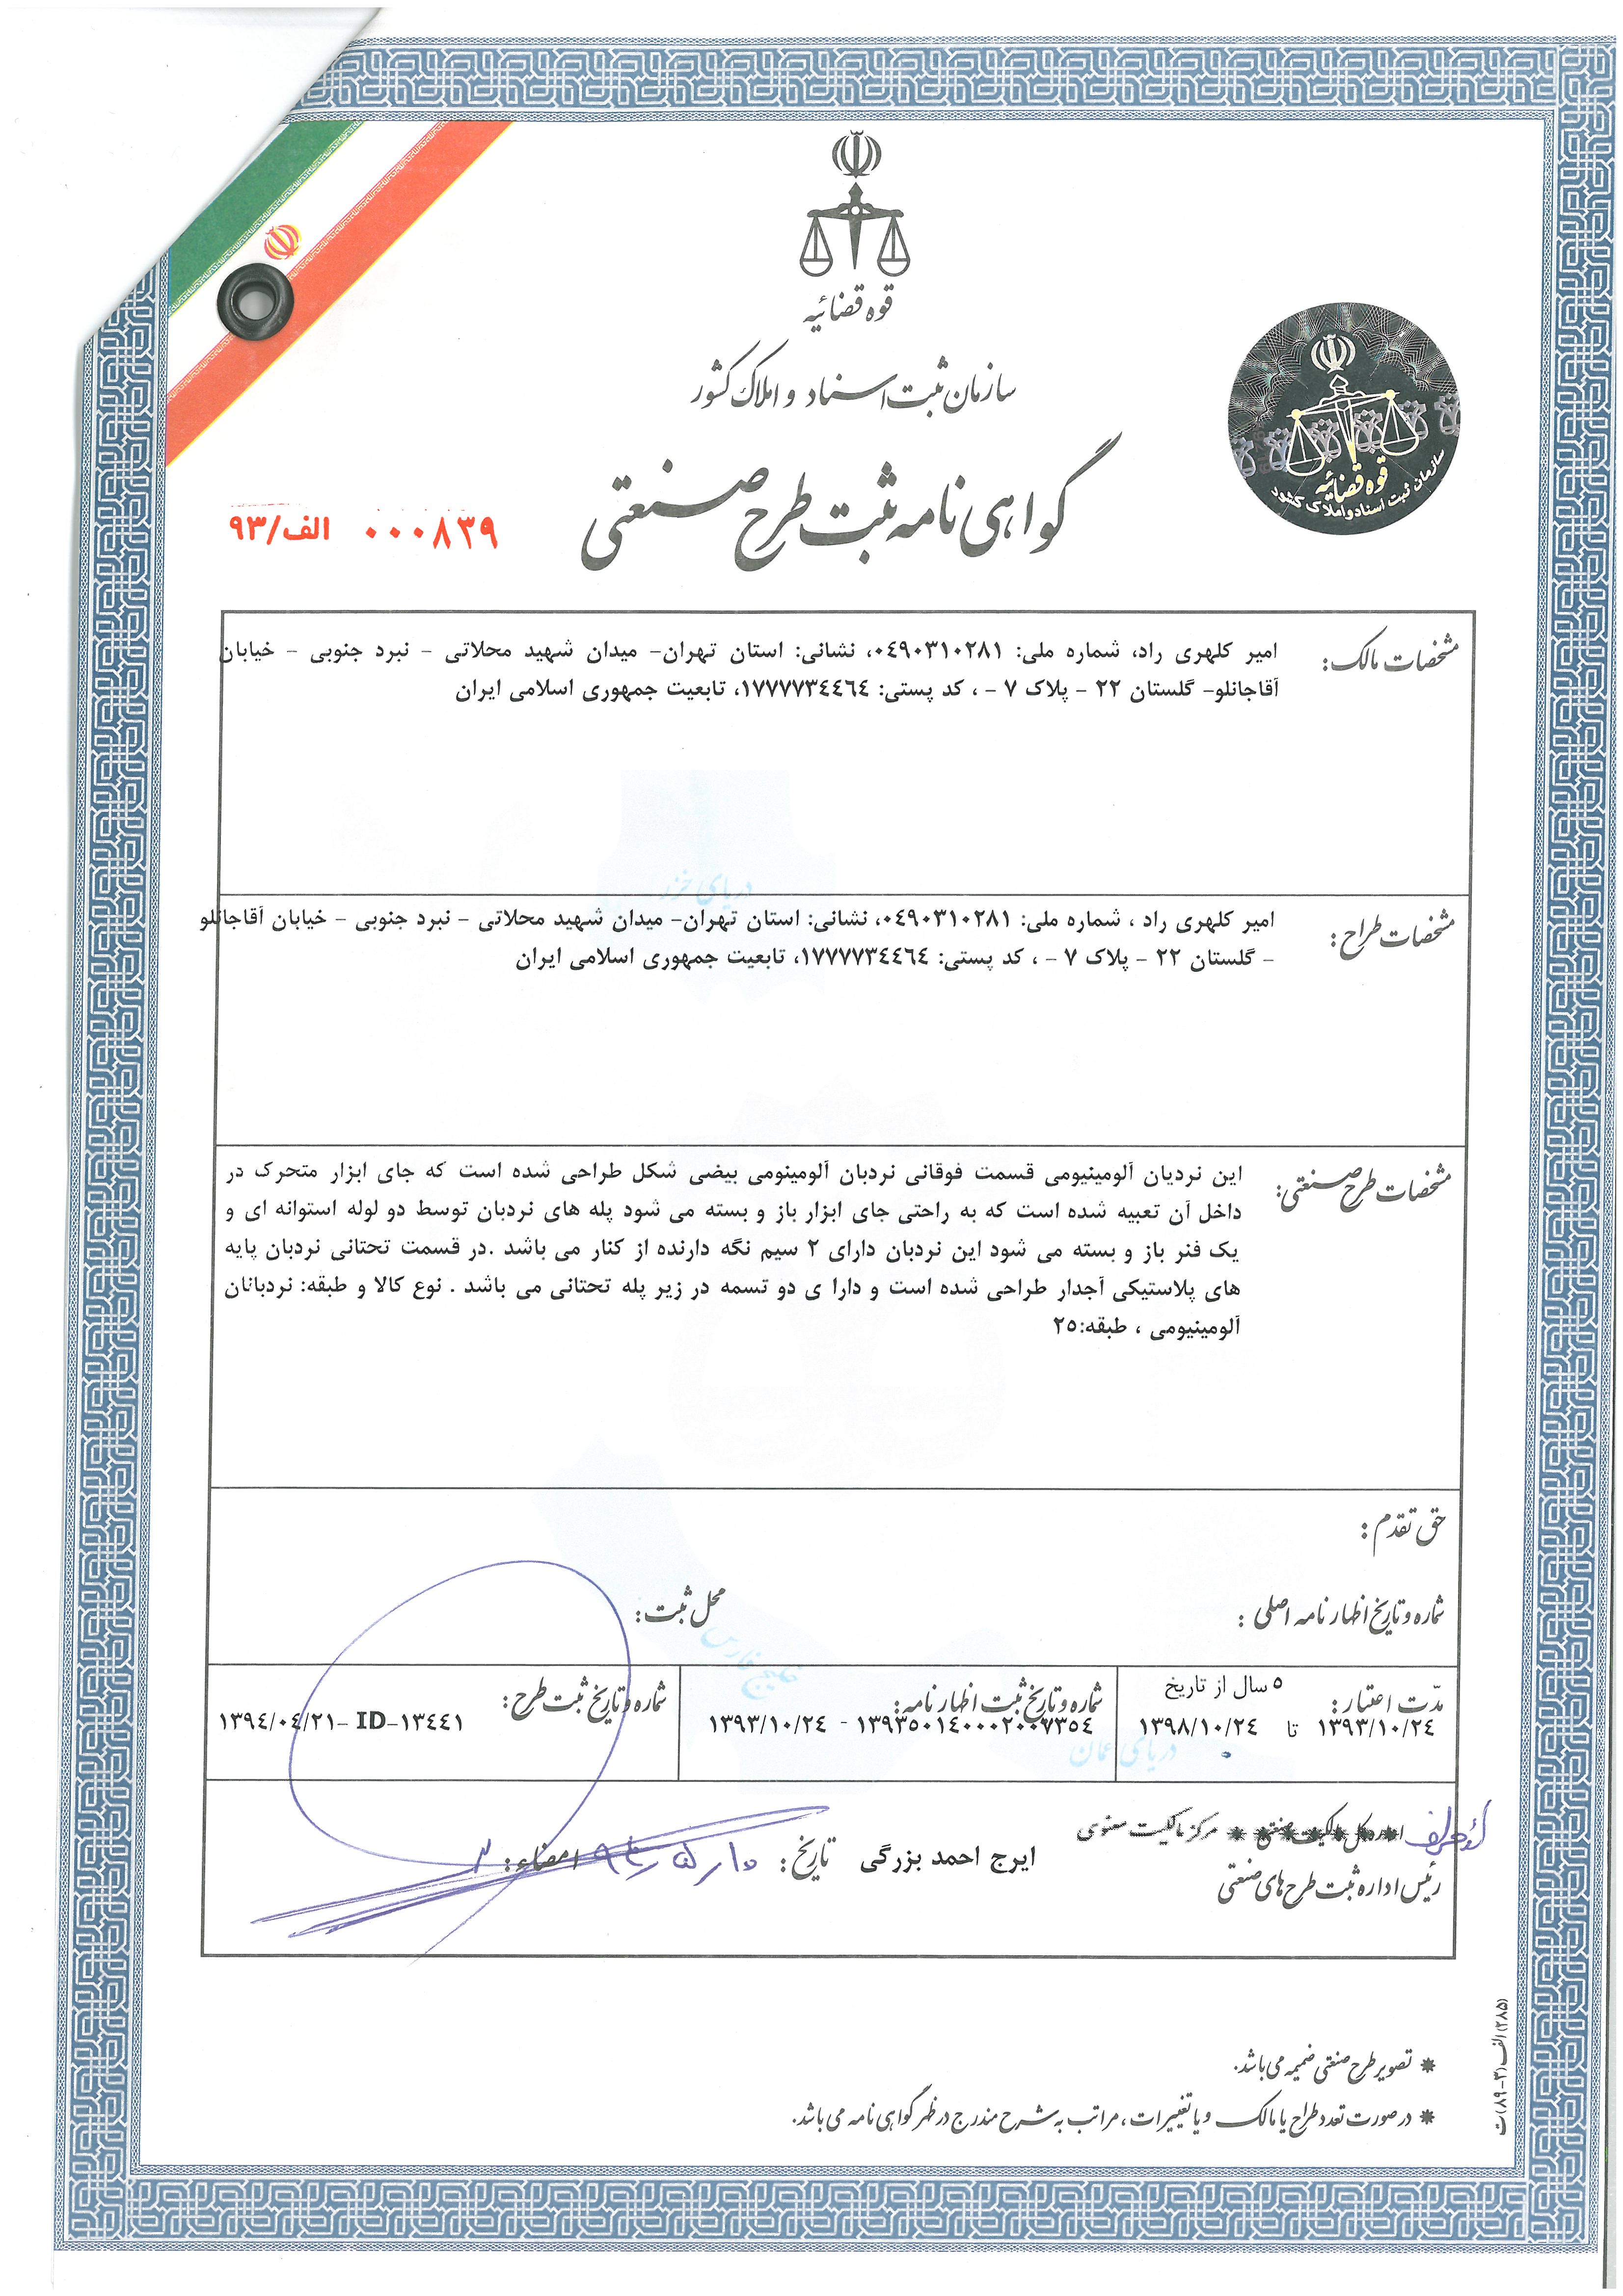 قوه قضائیه
سازمان ثبت اسناد و املاک کشور
گواهی نامه ثبت طرح صنعتی
۰۰۰۸۳۹ الف/۹۳
قوه قضائیه
سازمان ثبت اسناد و املاک کشور
مشخصات مالک:
امیر کلهری راد، شماره ملی: ۰٤۹۰۳۱۰۲۸۱، نشانی: استان تهران- میدان شهید محلاتی - نبرد جنوبی - خیابان
آقاجانلو- گلستان ۲۲ - پلاک ۷ - ، کد پستی: ۱۷۷۷۷۳٤٤٦٤، تابعیت جمهوری اسلامی ایران
مشخصات طراح:
امیر کلهری راد ، شماره ملی: ۰٤۹۰۳۱۰۲۸۱، نشانی: استان تهران- میدان شهید محلاتی - نبرد جنوبی - خیابان آقاجانلو
- گلستان ۲۲ - پلاک ۷ - ، کد پستی: ۱۷۷۷۷۳٤٤٦٤، تابعیت جمهوری اسلامی ایران
مشخصات طرح صنعتی:
این نردیان آلومینیومی قسمت فوقانی نردبان آلومینومی بیضی شکل طراحی شده است که جای ابزار متحرک در
داخل آن تعبیه شده است که به راحتی جای ابزار باز و بسته می شود پله های نردبان توسط دو لوله استوانه ای و
یک فنر باز و بسته می شود این نردبان دارای ۲ سیم نگه دارنده از کنار می باشد .در قسمت تحتانی نردبان پایه
های پلاستیکی آجدار طراحی شده است و دارا ی دو تسمه در زیر پله تحتانی می باشد . نوع کالا و طبقه: نردبانان
آلومینیومی ، طبقه:۲۵
حق تقدم :
شماره و تاریخ اظهار نامه اصلی :
محل ثبت:
مدّت اعتبار: ٥ سال از تاریخ
۱۳۹۳/۱۰/۲٤ تا ۱۳۹۸/۱۰/۲٤
شماره و تاریخ ثبت اظهار نامه:
۱۳۹۳۵۰۱٤۰۰۰۲۰۰۷۳۵٤ - ۱۳۹۳/۱۰/۲٤
شماره و تاریخ ثبت طرح:
۱۳۹٤/۰٤/۲۱- ID-۱۳٤٤۱
اداره کل مالکیت صنعتی * مرکز مالکیت معنوی
رئیس اداره ثبت طرح های صنعتی
ایرج احمد بزرگی
تاریخ:
امضاء:
* تصویر طرح صنعتی ضمیمه می باشد.
* در صورت تعدد طراح یا مالک و یا تغییرات ، مراتب به شرح مندرج در ظهر گواهی نامه می باشد.
ت (۸۹-۳) الف (۲۸۵)
دریای خزر
خلیج فارس
دریای عمان